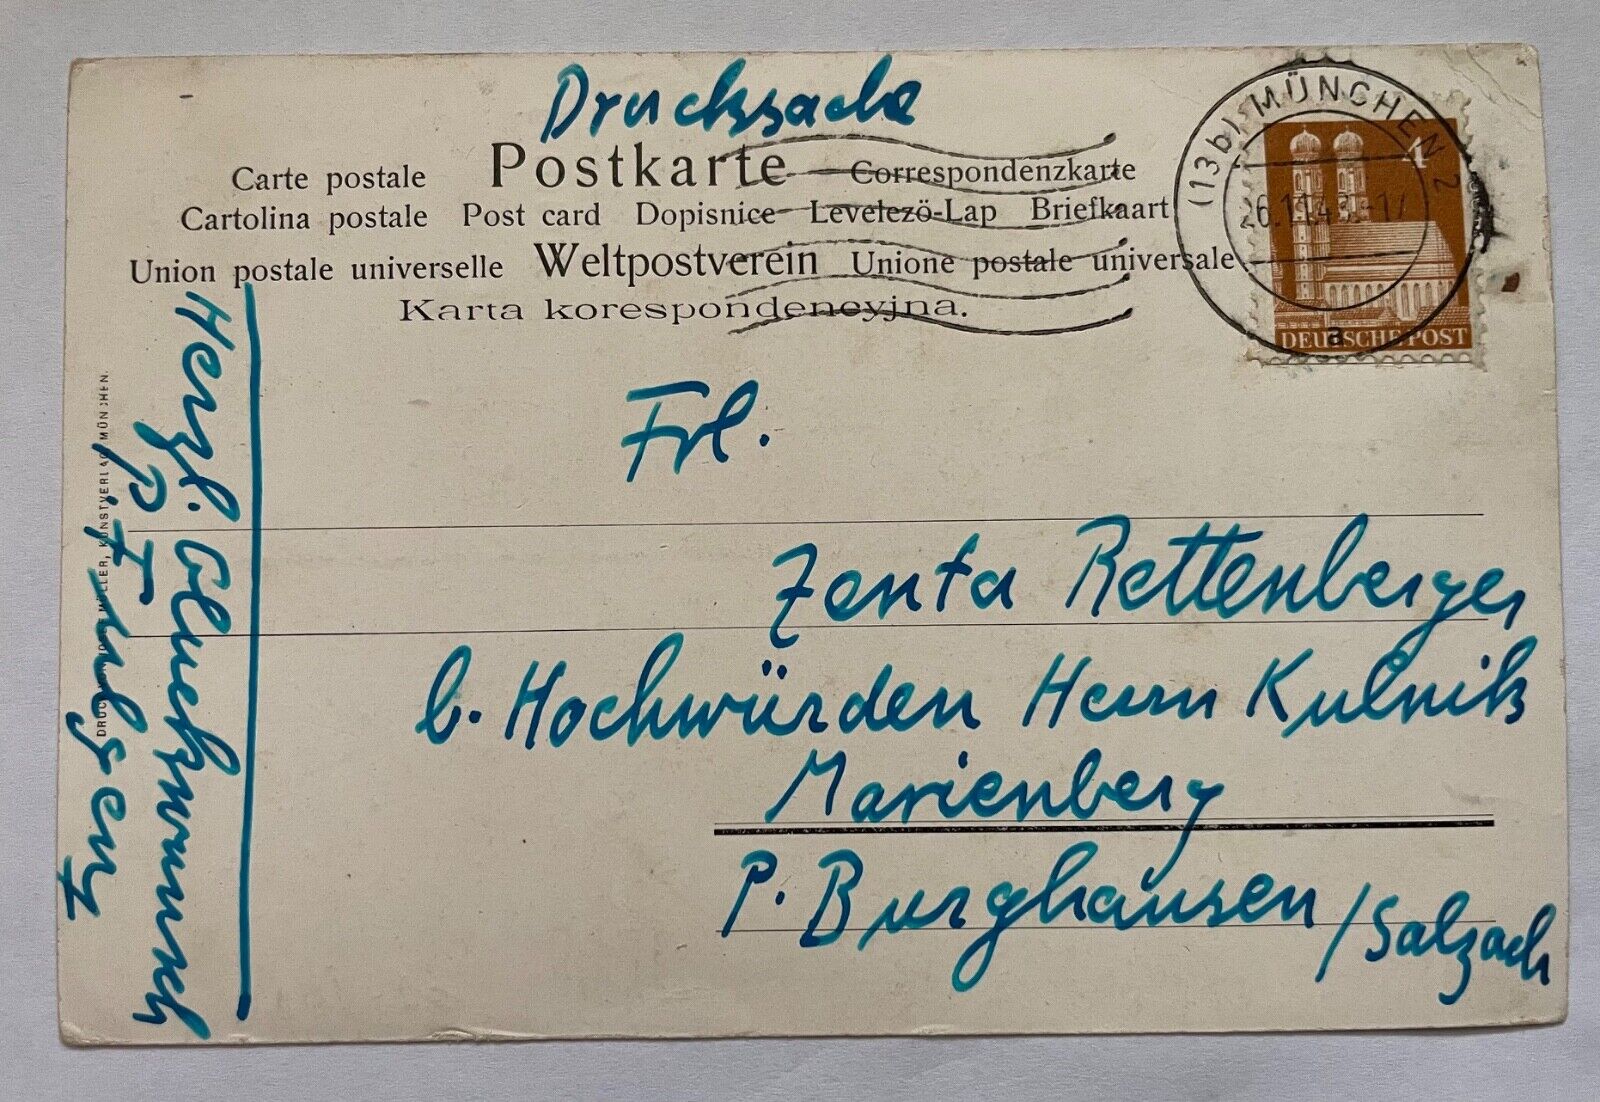 Drucksache
Carte postale Postkarte Correspondenzkarte
Cartolina postale Post card Dopisnice Levelezö-Lap Briefkaart
Union postale universelle Weltpostverein Unione postale universale
Karta korespondencyjna.
(13b) MÜNCHEN 2
a
4
DEUTSCHE POST
Frl.
Zenta Rettenberger
b. Hochwürden Herrn Kulnik
Marienberg
P. Burghausen/Salzach
Herzl. Glückwunsch
MÜLLER, KUNSTVERLAG MÜNCHEN.